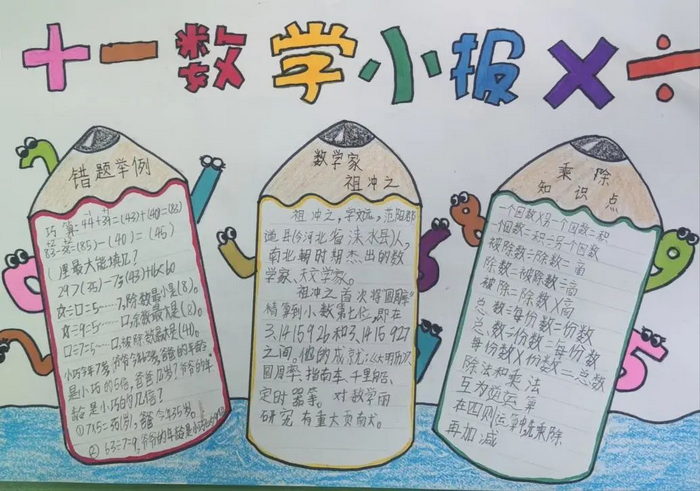 + - 数学小报 × ÷
错题举例
巧算:44+39=(43)+(40)=(83)
83-38=(85)-(40)=(45)
( )里最大能填几?
29>7(35)-7 5(43)+16<60
☆÷□=5……7,除数最小是(8)。
☆÷9=5……□,余数最大是(8)。
□÷7=5……□,被除数最大是(41)。
是小巧的5倍,爸爸几岁?爷爷的年
龄是小巧的几倍?
①7×5=35(岁),爸爸今年35岁。
②63÷7=9,爷爷的年龄是小巧的
数学家
祖冲之
祖冲之,字文远,范阳郡
遒县(今河北省涞水县)人,
南北朝时期杰出的数
学家、天文学家。
祖冲之首次将"圆周率"
精算到小数第七位,即在
3.1415926和3.1415927
之间,他的成就
圆周率、指南车、千里船、
定时器等。对数学而
研究有重大贡献。
乘除
知识点
一个因数×另一个因数=积
一个因数=积÷另一个因数
被除数÷除数=商
除数=被除数÷商
被除=除数×商
总数÷每份数=份数
总数÷份数=每份数
每份数×份数=总数
除法和乘法
互为逆运算
在四则运算先乘除
再加减